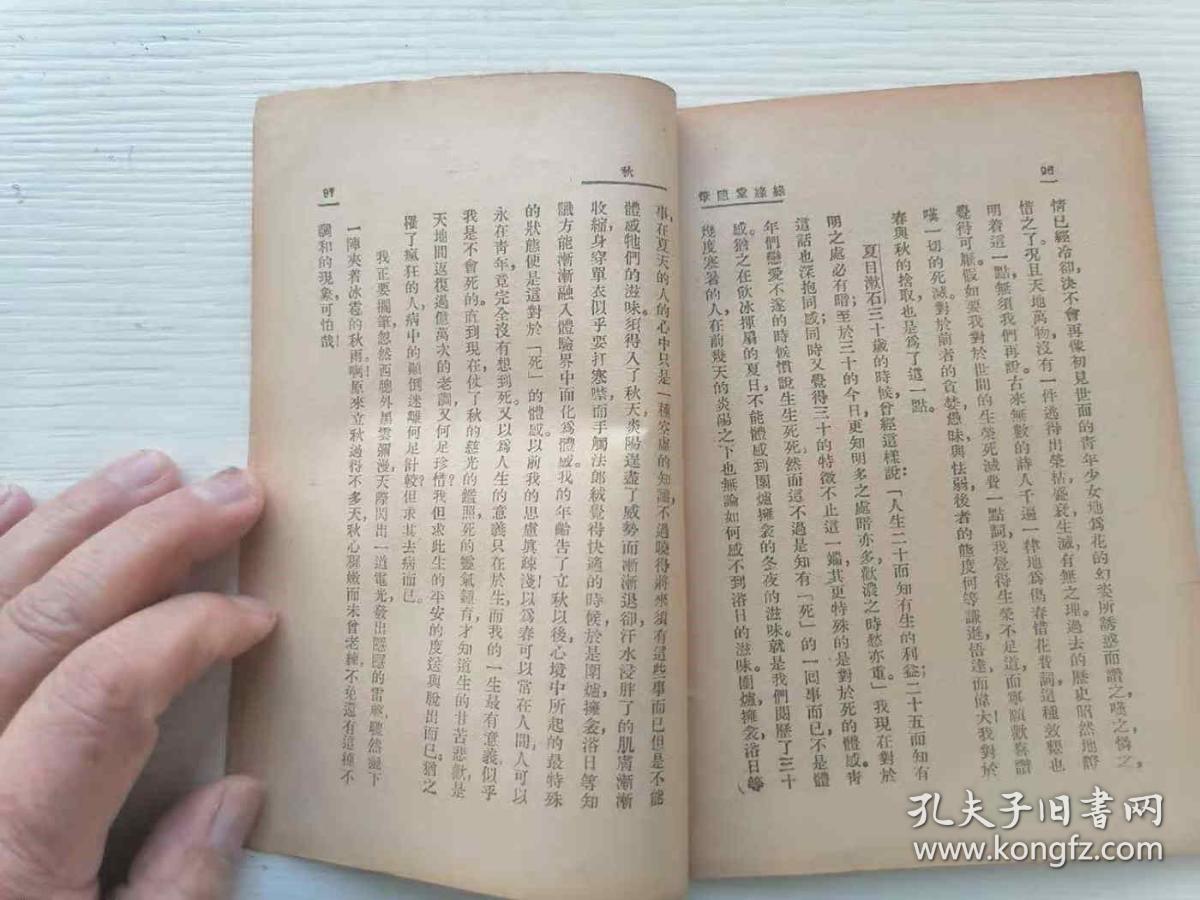 緣緣堂隨筆
96
情已經冷卻決不會再像初見世面的青年少女地爲花的幻姿所誘惑而讚之嘆之憐之，
惜之了。況且天地萬物，沒有一件逃得出榮枯，盛衰，生滅，有無之理。過去的歷史昭然地證
明着這一點，無須我們再說。古來無數的詩人千遍一律地爲傷春惜花費詞，這種效顰也
覺得可厭。假如要我對於世間的生榮死滅費一點詞，我覺得生榮不足道，而寧願歡喜讚
嘆一切的死滅。對於前者的貪婪，愚昧，與怯弱，後者的態度何等謙遜，悟達，而偉大！我對於
春與秋的捨取，也是爲了這一點。
夏目漱石三十歲的時候，曾經這樣說：「人生二十而知有生的利益；二十五而知有
明之處必有暗；至於三十的今日，更知明多之處暗亦多，歡濃之時愁亦重。」我現在對於
這話也深抱同感；同時又覺得三十的特徵不止這一端，其更特殊的是對於死的體感。青
年們戀愛不遂的時候慣說生生死死，然而這不過是知有「死」的一回事而已，不是體
感。猶之在飲冰揮扇的夏日，不能體感到圍爐擁衾的冬夜的滋味。就是我們閱歷了三十
幾度寒暑的人，在前幾天的炎陽之下也無論如何感不到浴日的滋味。圍爐，擁衾，浴日等
秋
97
事，在夏天的人的心中只是一種空虛的知識，不過曉得將來須有這些事而已，但是不能
體感牠們的滋味。須得入了秋天，炎陽逞盡了威勢而漸漸退卻，汗水浸胖了的肌膚漸漸
收縮，身穿單衣似乎要打寒噤，而手觸法郎絨覺得快適的時候，於是圍爐，擁衾，浴日等知
識方能漸漸融入體驗界中而化爲體感。我的年齡告了立秋以後，心境中所起的最特殊
的狀態便是這對於「死」的體感。以前我的思慮眞疎淺！以爲春可以常在人間，人可以
永在青年，竟完全沒有想到死。又以爲人生的意義只在於生，而我的一生最有意義，似乎
我是不會死的。直到現在，仗了秋的慈光的鑑照，死的靈氣鍾育，才知道生的甘苦悲歡，是
天地間返復過億萬次的老調，又何足珍惜？我但求此生的平安的度送與脫出而已。猶之
罹了瘋狂的人，病中的顛倒迷離何足計較？但求其去病而已。
我正要擱筆，忽然西聰外黑雲彌漫，天際閃出一道電光，發出隱隱的雷聲，驟然灑下
一陣夾着冰雹的秋雨。啊！原來立秋過得不多天，秋心穉嫩而未曾老練，不免還有這種不
調和的現象，可怕哉！
孔夫子旧书网
www.kongfz.com